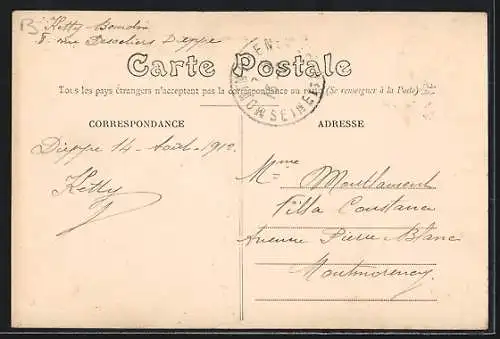 B Ketty Boudin
8. rue Desceliers Dieppe
Carte Postale
Tous les pays étrangers n'acceptent pas la correspondance au recto (Se renseigner à la Poste)
CORRESPONDANCE
ADRESSE
Dieppe 14 Août 1912.
Ketty
Mme
Villa Constance
Avenue Pierre Blanc
Montmorency